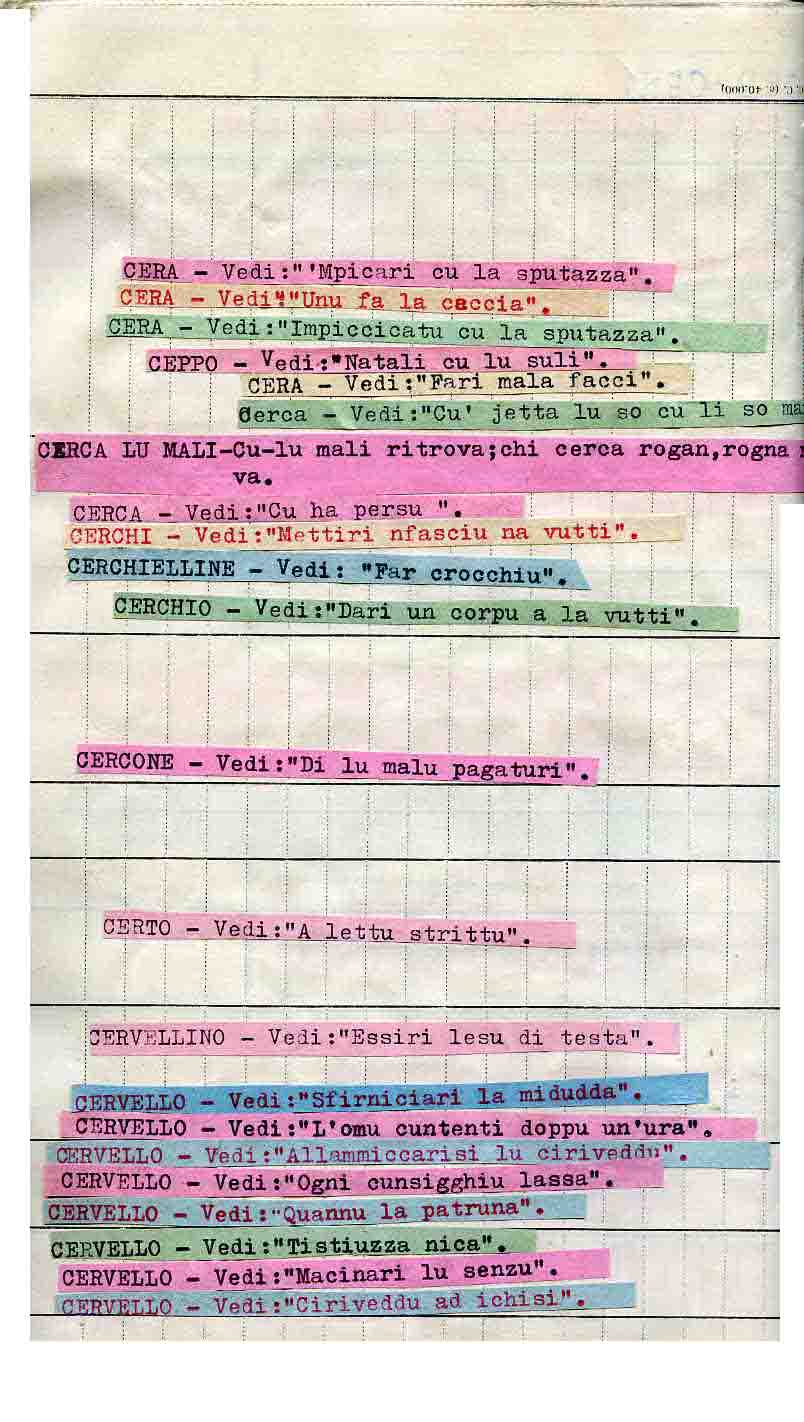 C. C. (c. 40.000)
CERA - Vedi:"'Mpicari cu la sputazza".
CERA - Vedi:"Unu fa la caccia".
CERA - Vedi:"Impiccicatu cu la sputazza".
CEPPO - Vedi:"Natali cu lu suli".
CERA - Vedi:"Fari mala facci".
Cerca - Vedi:"Cu' jetta lu so cu li so ma
CERCA LU MALI-Cu-lu mali ritrova;chi cerca rogan,rogna
va.
CERCA - Vedi:"Cu ha persu ".
CERCHI - Vedi:"Mettiri nfasciu na vutti".
CERCHIELLINE - Vedi: "Far crocchiu".
CERCHIO - Vedi:"Dari un corpu a la vutti".
CERCONE - Vedi:"Di lu malu pagaturi".
CERTO - Vedi:"A lettu strittu".
CERVELLINO - Vedi:"Essiri lesu di testa".
CERVELLO - Vedi:"Sfirniciari la midudda".
CERVELLO - Vedi:"L'omu cuntenti doppu un'ura".
CERVELLO - Vedi:"Allammiccarisi lu ciriveddu".
CERVELLO - Vedi:"Ogni cunsigghiu lassa".
CERVELLO - Vedi:"Quannu la patruna".
CERVELLO - Vedi:"Tistiuzza nica".
CERVELLO - Vedi:"Macinari lu senzu".
CERVELLO - Vedi:"Ciriveddu ad ichisi".